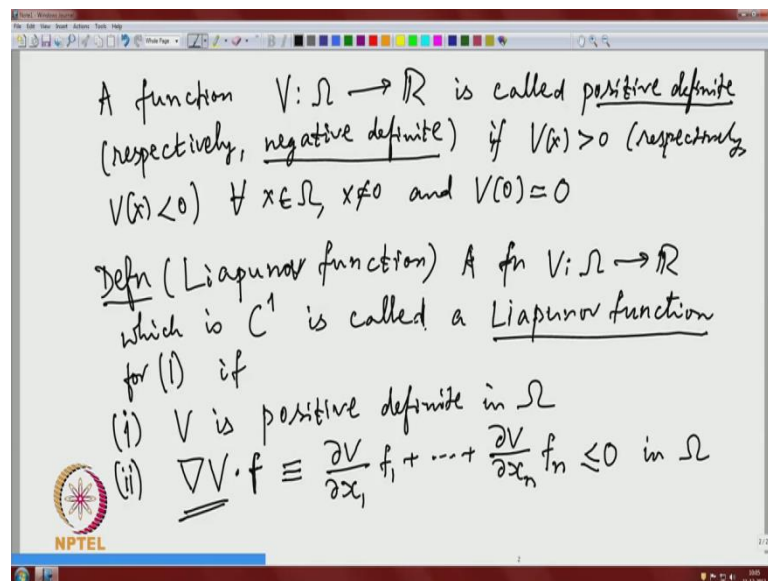 Note1 - Windows Journal
File Edit View Insert Actions Tools Help
A function V: Ω → ℝ is called positive definite
(respectively, negative definite) if V(x) > 0 (respectively
V(x) < 0) ∀ x ∈ Ω, x ≠ 0 and V(0) = 0
Defn (Liapunov function) A fn V: Ω → ℝ
which is C¹ is called a Liapunov function
for (1) if
(i) V is positive definite in Ω
(ii) ∇V · f ≡ ∂V/∂x₁ f₁ + ⋯ + ∂V/∂xₙ fₙ ≤ 0 in Ω
NPTEL
2
2/2